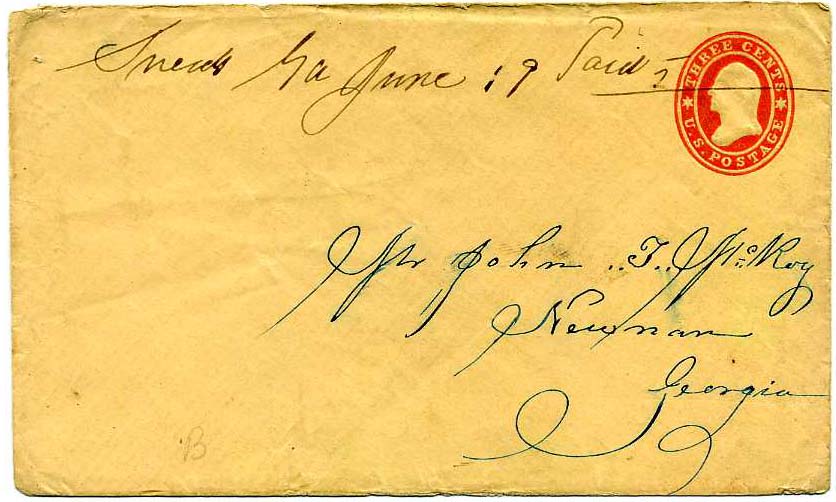 Sneads Ga June 19 Paid 5
THREE CENTS
U.S. POSTAGE
Mr John .. T.. McKoy
Newnan
Georgia
B